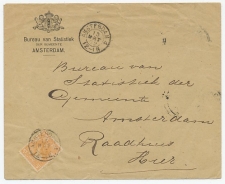 Bureau van Statistiek
DER GEMEENTE
AMSTERDAM.
Bureau van
Statistiek der
Gemeente
Amsterdam
Raadhuis
Hier.